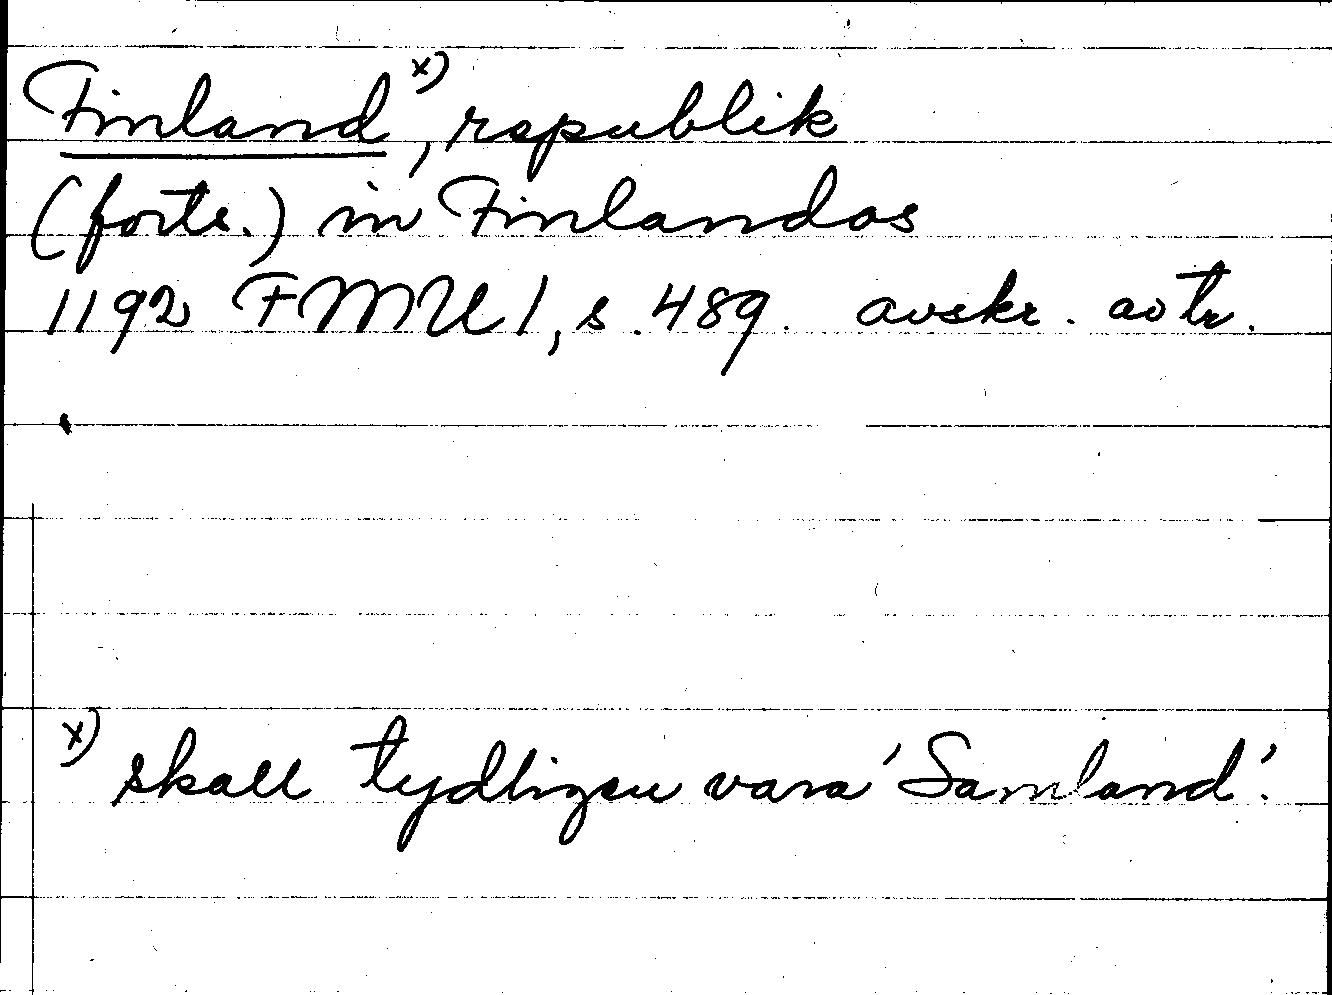 Finland x), republik
(forts.) in Finlandos
1192 FMU 1, s. 489. avskr. av tr.
x) skall tydligen vara 'Samland'.